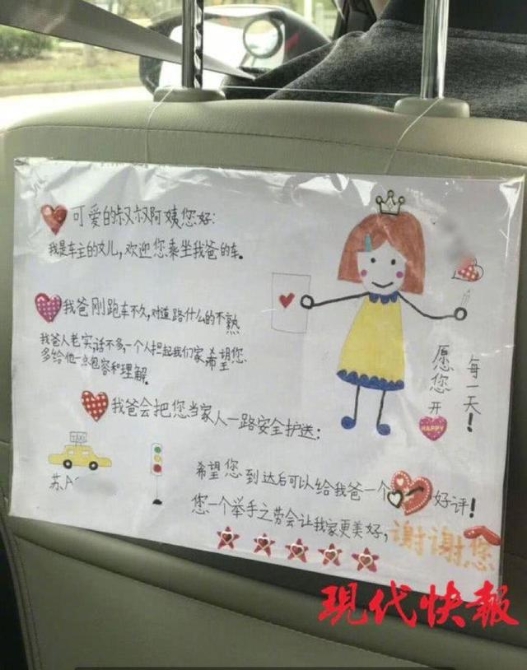 可爱的叔叔阿姨您好:
我是车主的女儿,欢迎您乘坐我爸的车。
我爸刚跑车不久,对道路什么的不熟
我爸人老实,话不多,一个人担起我们家希望您
多给他一点包容和理解。
我爸会把您当家人一路安全护送:
愿您开
HAPPY
每一天!
苏A
希望您到达后可以给我爸一个好评!
您一个举手之劳会让我家更美好,谢谢您
现代快報